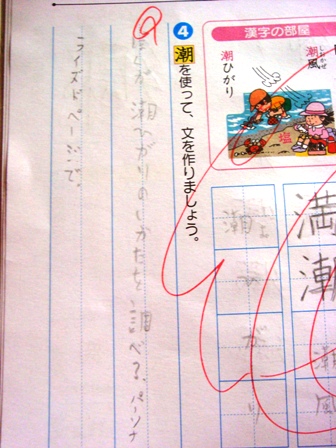 漢字の部屋
潮風
しおかぜ
潮ひがり
塩
満潮
潮風
潮ひがり
④ 潮を使って、文を作りましょう。
潮ひがりのしかたを調べる、パーソナ
ライズドページで。